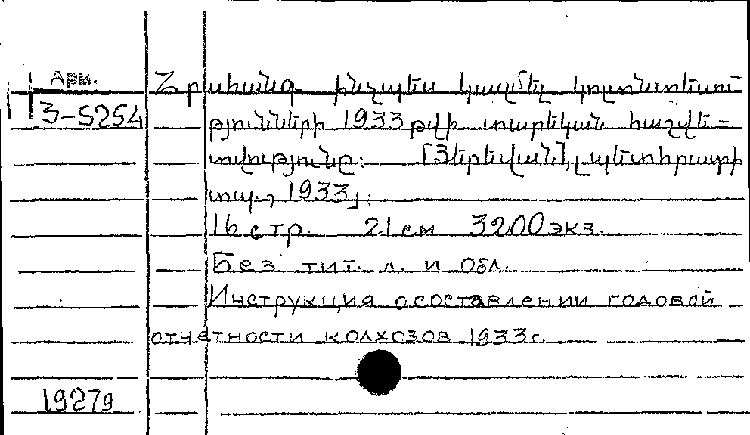 Арм.
3-5254
Հրահանգ ինչպես կազմել կոլտնտեսու-
թյունների 1933 թվի տարեկան հաշվե-
տվությունը: [Յերեվան], պետհրատի
տպ., 1933]:
16 стр. 21 см 3200 экз.
Без тит. л. и обл.
Инструкция о составлении годовой
отчетности колхозов 1933 г.
19279